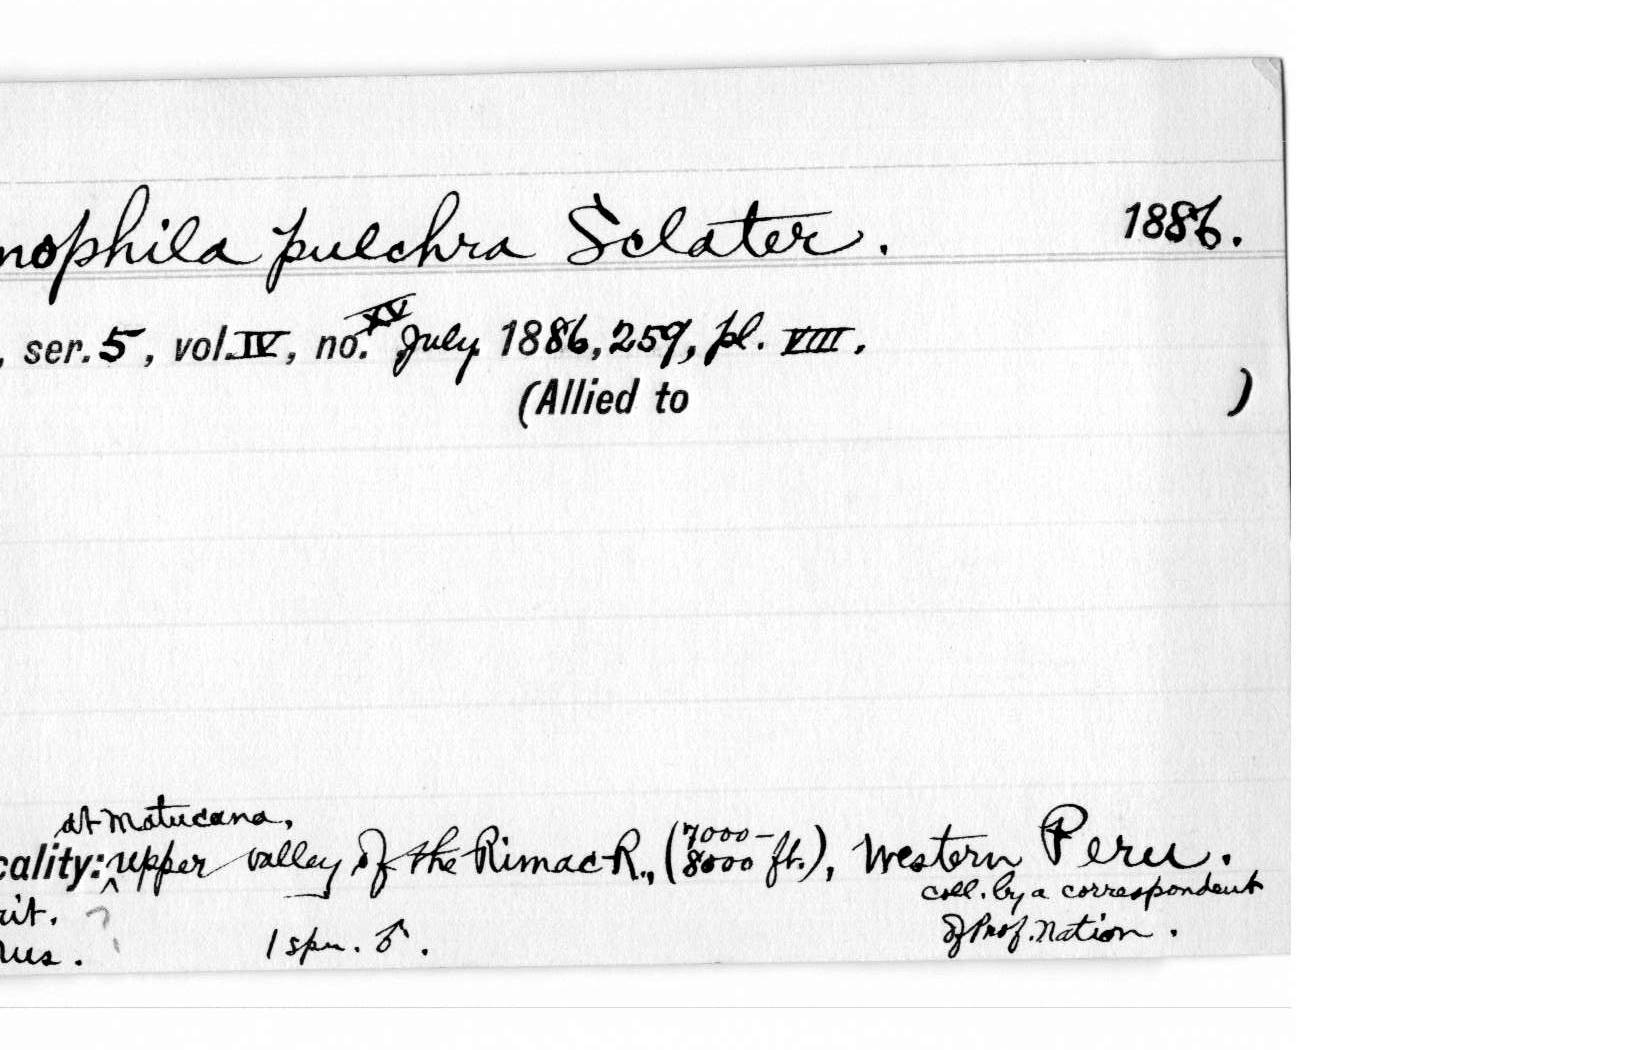 nophila pulchra Sclater. 1886.
, ser. 5, vol. IV, no. XV July 1886, 259, pl. VIII.
(Allied to )
at Matucana,
cality: ^ upper valley of the Rimac R., (7000-8000 ft.), Western Peru.
coll. by a correspondent
of Prof. Nation.
rit. ?
Mus. 1 spm. ♂.